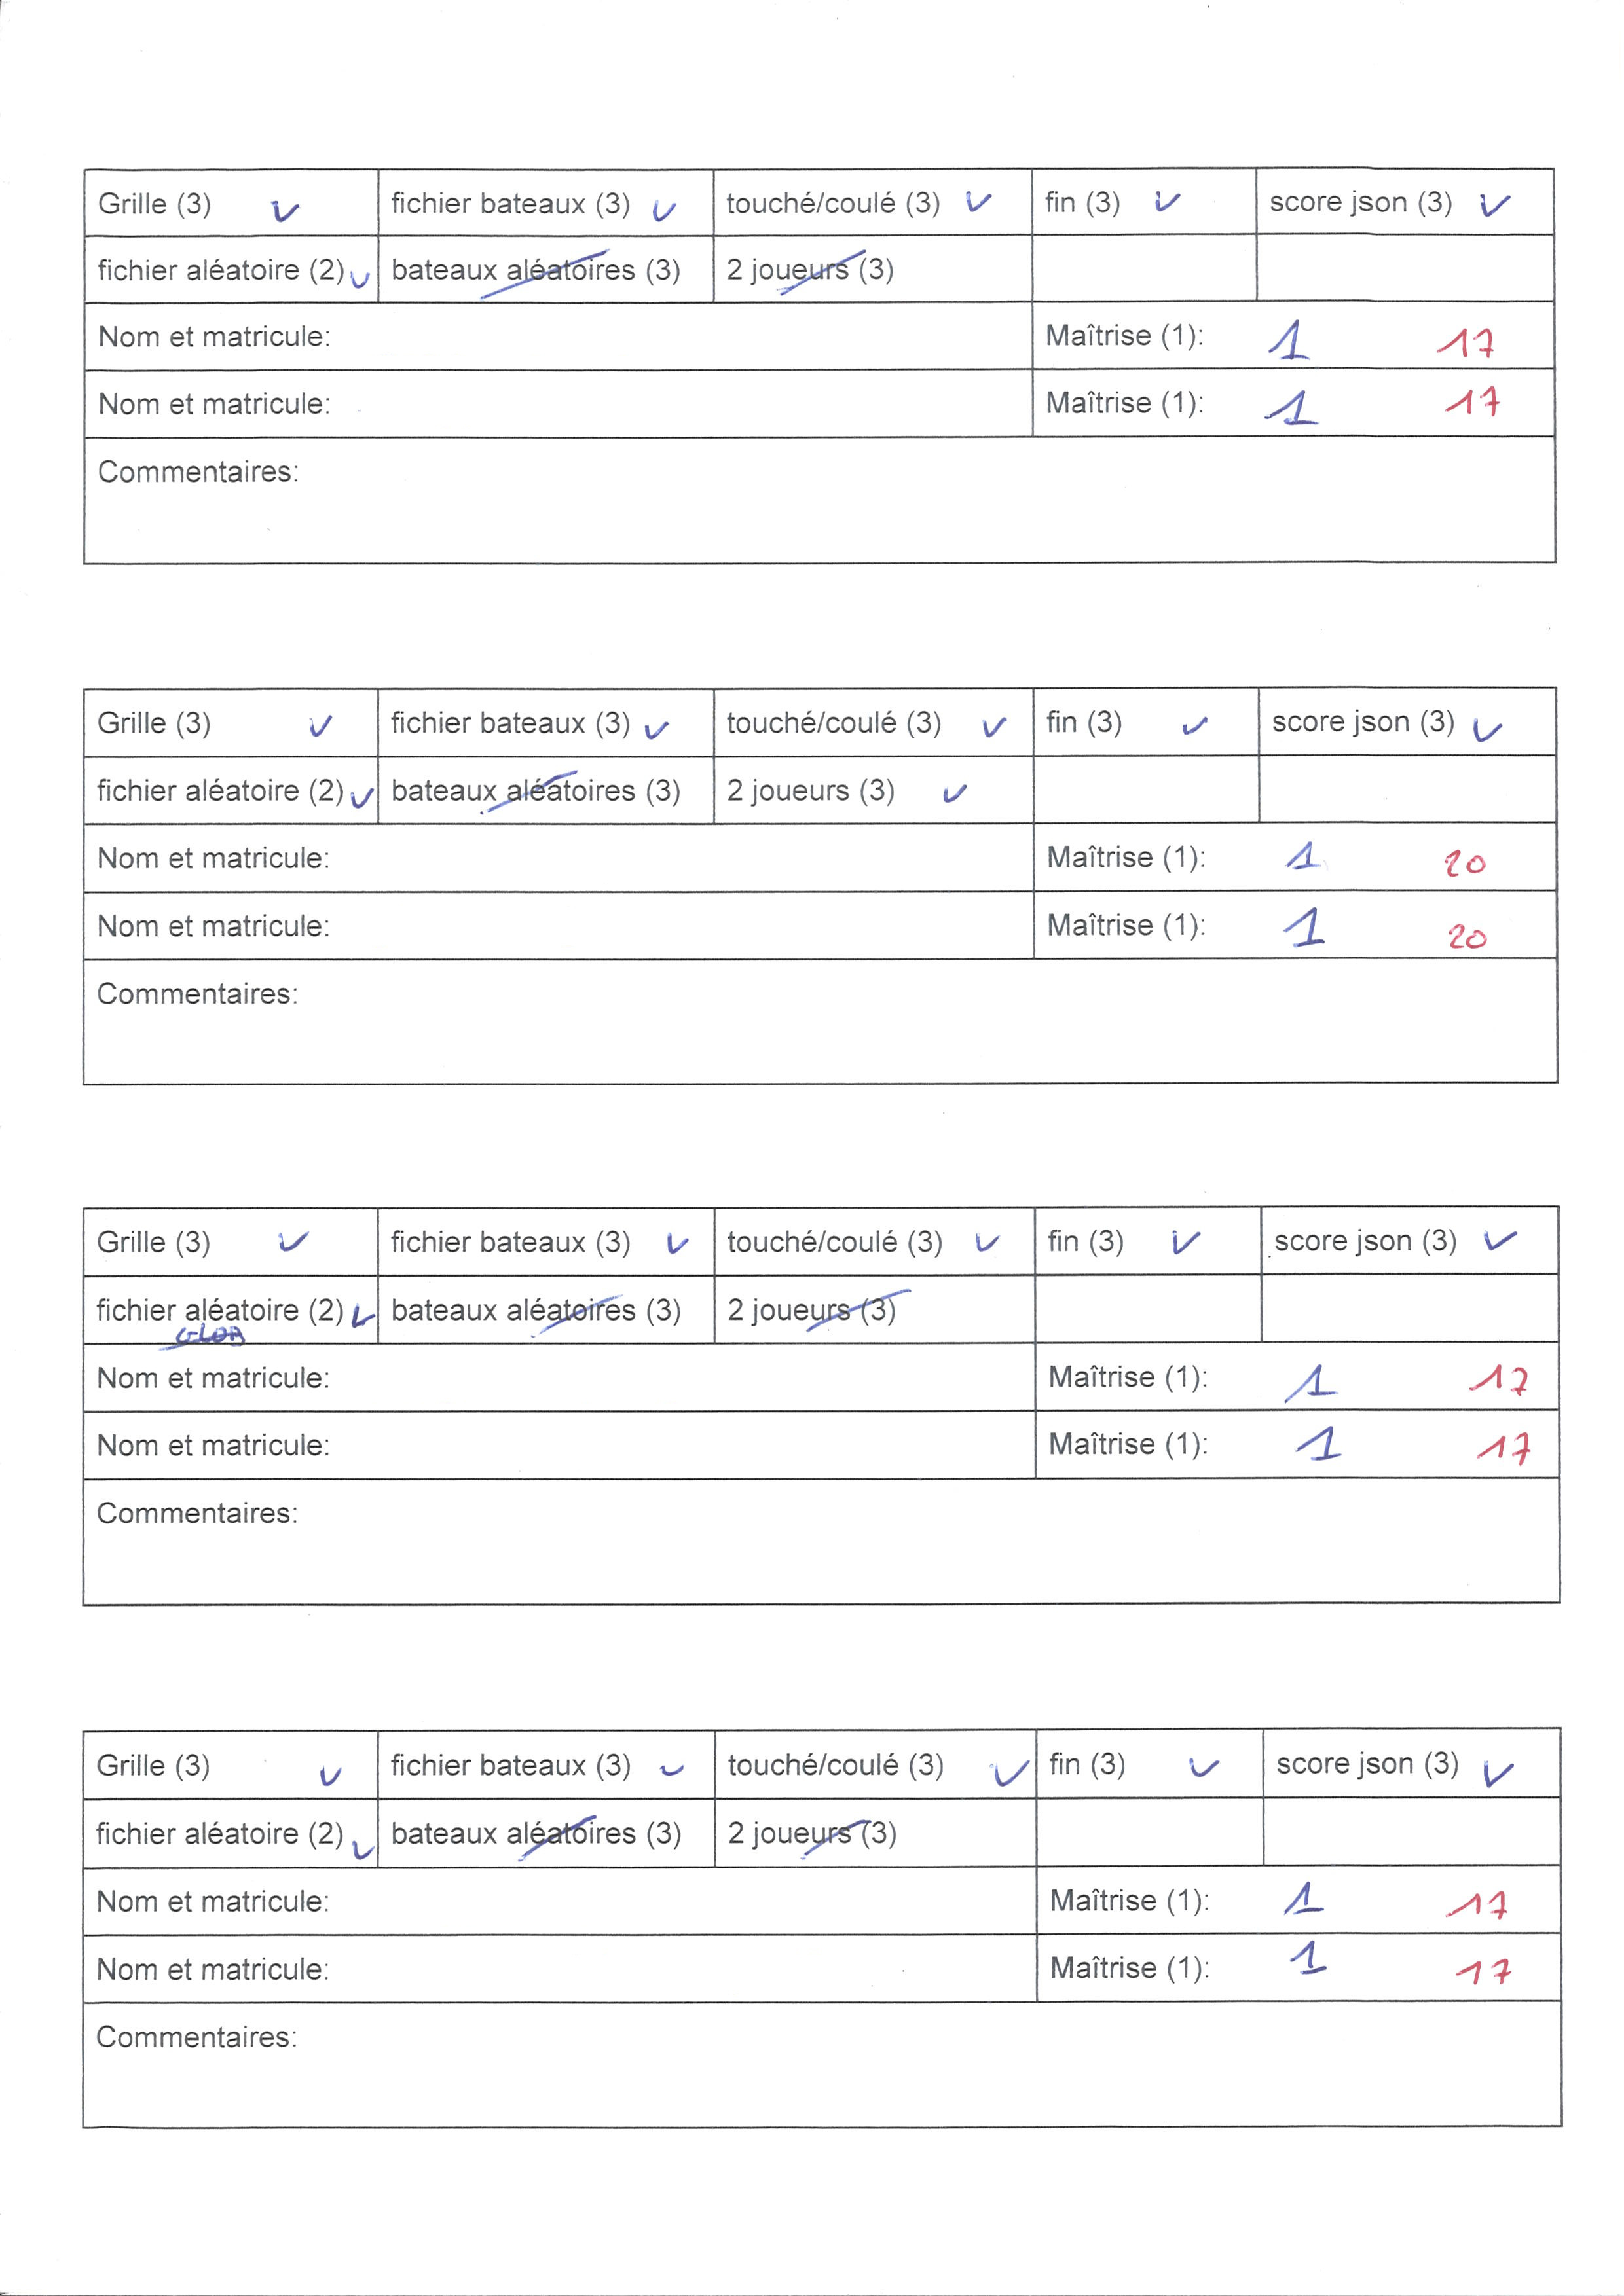 Grille (3) fichier bateaux (3) touché/coulé (3) fin (3) score json (3)
fichier aléatoire (2) bateaux aléatoires (3) 2 joueurs (3)
Nom et matricule: Maîtrise (1): 1 17
Nom et matricule: Maîtrise (1): 1 17
Commentaires:
Grille (3) fichier bateaux (3) touché/coulé (3) fin (3) score json (3)
fichier aléatoire (2) bateaux aléatoires (3) 2 joueurs (3)
Nom et matricule: Maîtrise (1): 1 20
Nom et matricule: Maîtrise (1): 1 20
Commentaires:
Grille (3) fichier bateaux (3) touché/coulé (3) fin (3) score json (3)
fichier aléatoire (2) bateaux aléatoires (3) 2 joueurs (3)
Nom et matricule: Maîtrise (1): 1 17
Nom et matricule: Maîtrise (1): 1 17
Commentaires:
Grille (3) fichier bateaux (3) touché/coulé (3) fin (3) score json (3)
fichier aléatoire (2) bateaux aléatoires (3) 2 joueurs (3)
Nom et matricule: Maîtrise (1): 1 17
Nom et matricule: Maîtrise (1): 1 17
Commentaires: